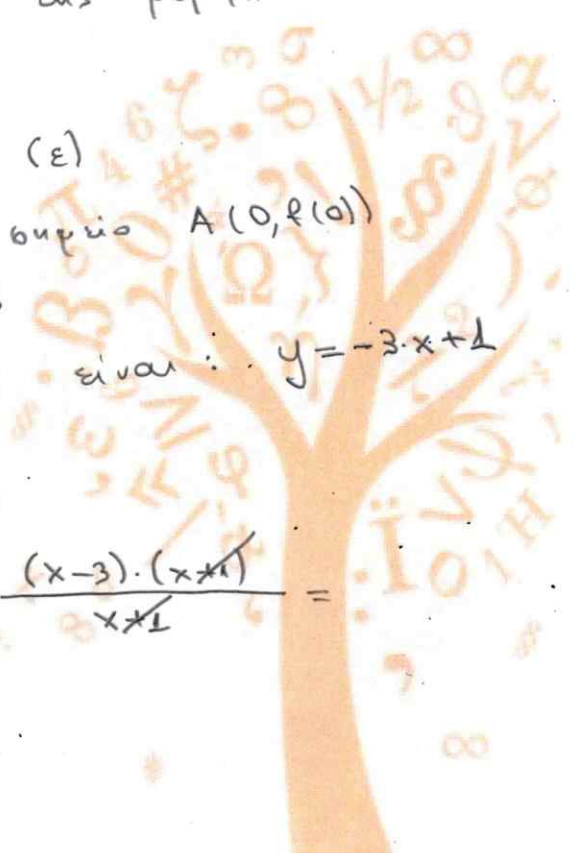 της
(ε)
σημείο A(0, f(0))
είναι : y = -3·x + 1
(x-3)·(x+1)
x+1
=